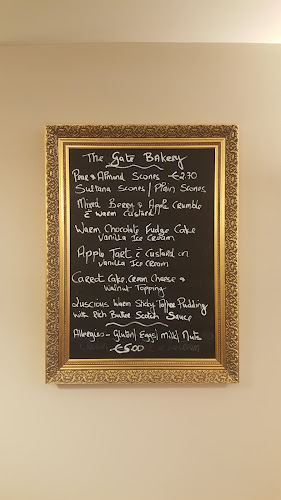 The Gate Bakery
Pear & Almond Scones €2.70
Sultana Scones / Plain Scones
Mixed Berry & Apple Crumble
& warm Custard
Warm Chocolate Fudge Cake
Vanilla Ice Cream
Apple Tart & Custard or
Vanilla Ice Cream
Carrot Cake, Cream Cheese &
Walnut Topping
Luscious Warm Sticky Toffee Pudding
with Rich Butter Scotch Sauce
Allergies - Gluten/ Eggs/ Milk/ Nuts
€5.00